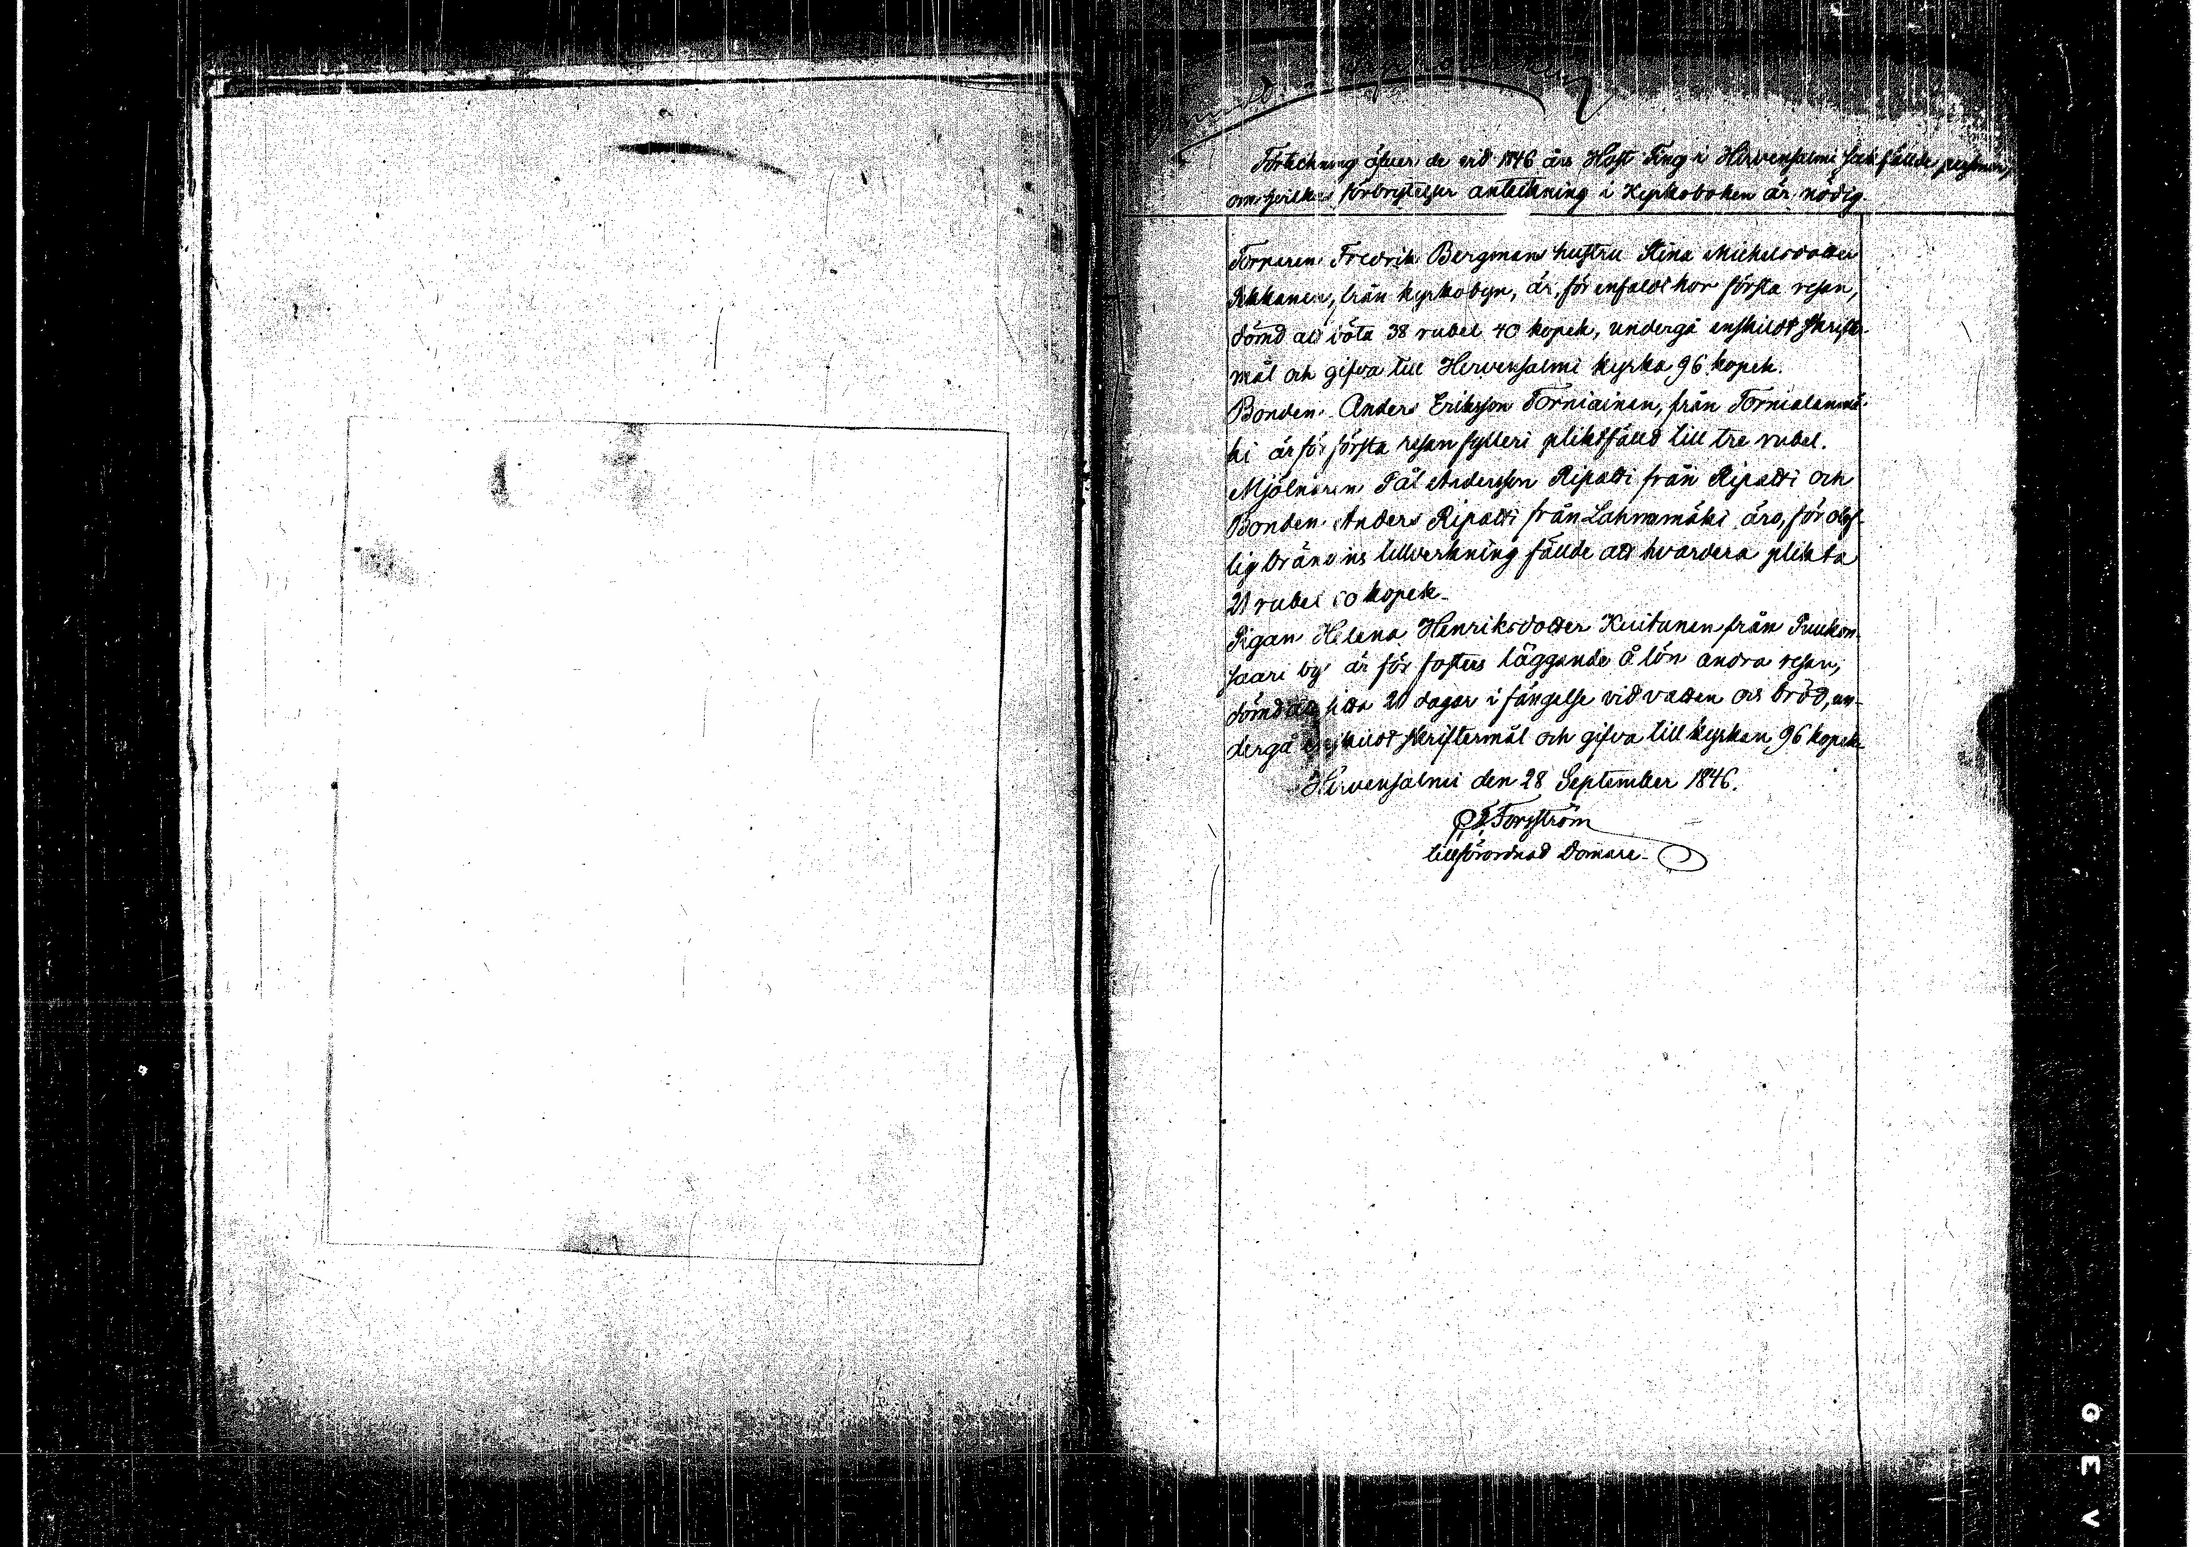 Förtekning öfver de vid 1846 års Höst Ting i Hirvensalmi sakfällde personer,
om hvilkas förbrytelser anteckning i Kyrkoboken är nödig.
Torparen Fredrik Bergmans hustru Stina Michelsdotter
Pekkanen, från kyrkobyn, är, för enfaldt hor första resan,
dömd att böta 38 rubel 40 kopek, undergå enskildt skrifte-
mål och gifva till Hirvensalmi kyrka 96 kopek.
Bonden Anders Eriksson Torniainen, från Tornialanmä-
ki är för första resan fylleri pliktfälld till tre rubel.
Mjölnaren Pål Andersson Ripatti från Ripatti och
Bonden Anders Ripatti från Lahnamäki äro, för olof-
lig bränvins tillverkning fällde att hvardera plikta
21 rubel 60 kopek.
Pigan Helena Henriksdotter Kuitunen från Puukon-
saari by är för fosters läggande å lön andra resan,
dömd att sitta 20 dagar i fängelse vid vatten och bröd, un-
dergå enskildt skriftermål och gifva till kyrkan 96 kopek.
Hirvensalmi den 28 September 1846.
Forsström
tillförordnad Domare.
G E V